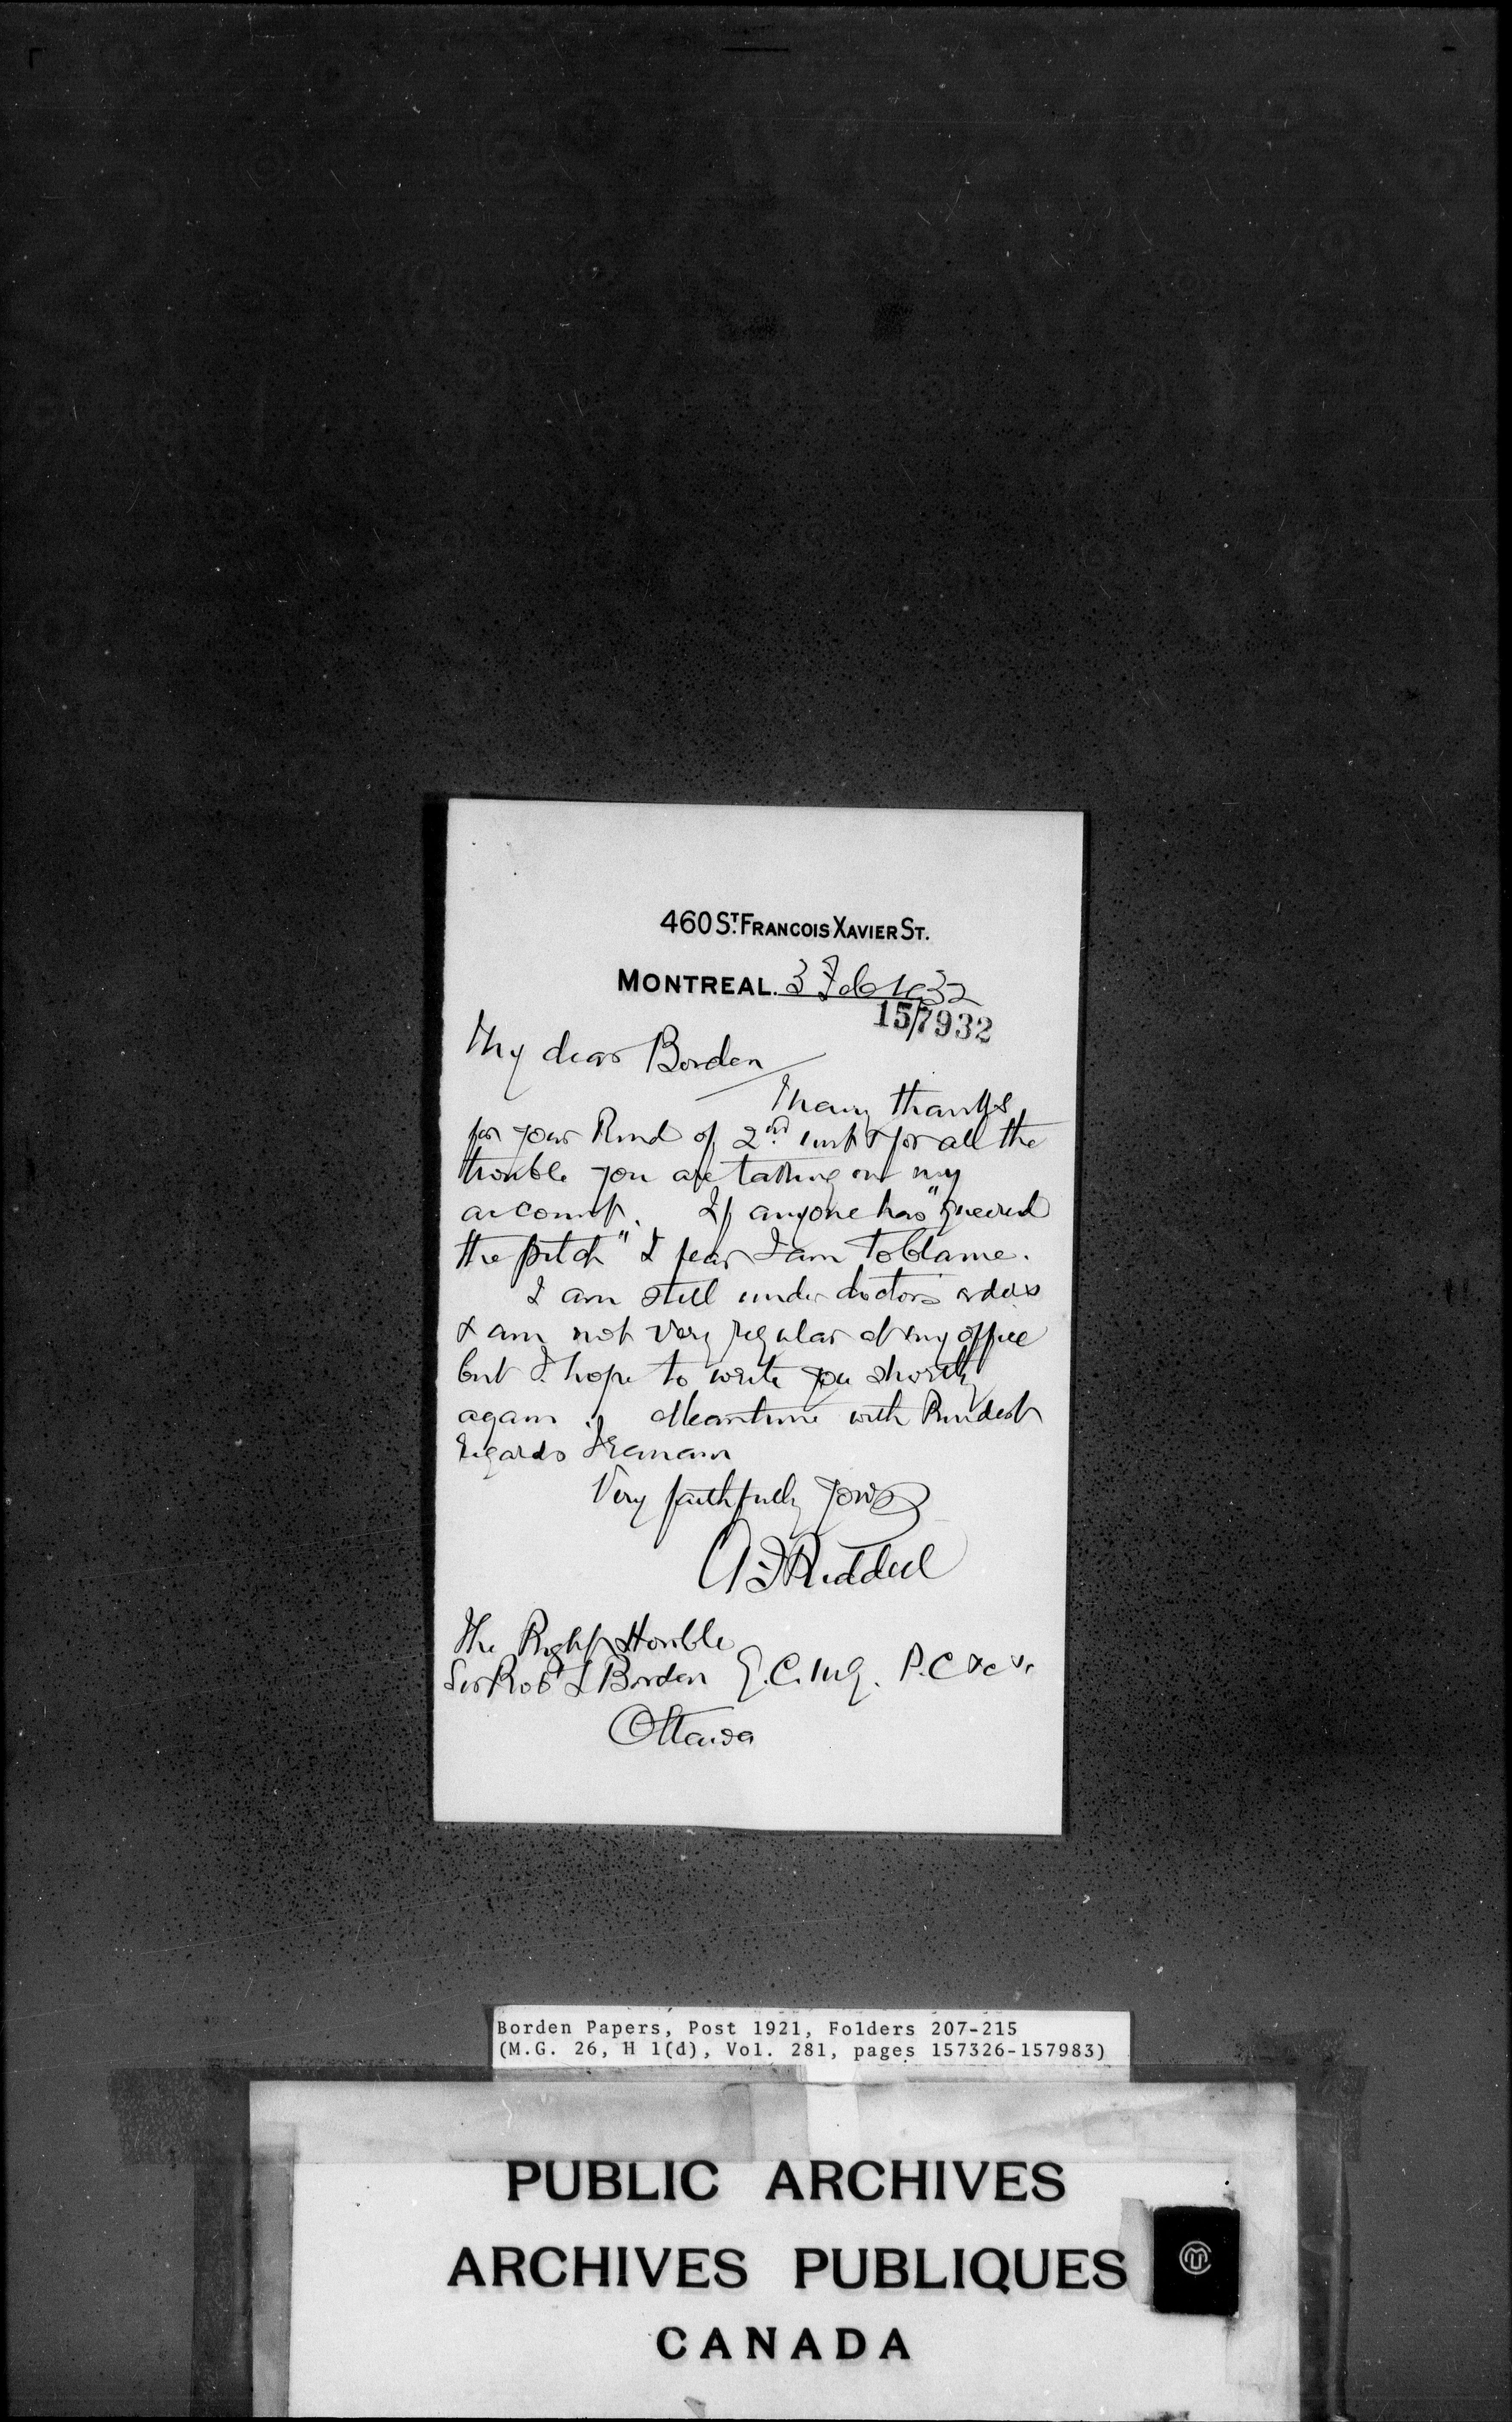 460 ST. FRANCOIS XAVIER ST.
MONTREAL. 3 Feb 1932
157932
My dear Borden
Many thanks
for your kind of 2nd inst & for all the
trouble you are taking on my
account. If anyone has "queered
the pitch" I fear I am to blame.
I am still under doctor's orders
& am not very regular at my office
but I hope to write you shortly
again. Meantime with kindest
regards I remain
Very faithfully yours
A F Riddell
The Right Honble
Sir Robt L Borden G.C.M.G. P.C &c &c
Ottawa
Borden Papers, Post 1921, Folders 207-215
(M.G. 26, H 1(d), Vol. 281, pages 157326-157983)
PUBLIC ARCHIVES
ARCHIVES PUBLIQUES
CANADA